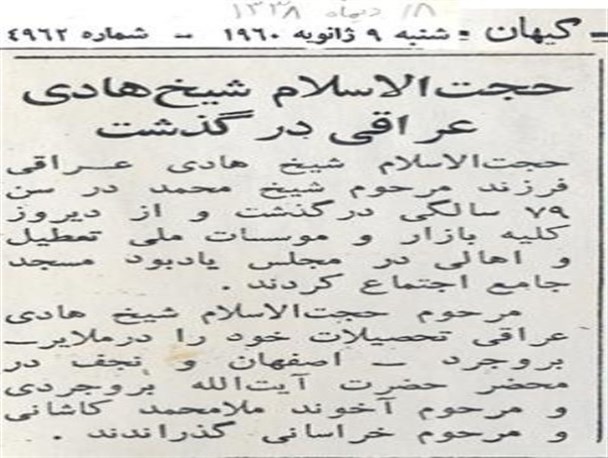 ۱۸ دیماه ۱۳۳۸
کیهان - شنبه ۹ ژانویه ۱۹۶۰ - شماره ۴۹۶۲
حجت‌الاسلام شیخ‌هادی
عراقی درگذشت
حجت‌الاسلام شیخ هادی عـراقی
فرزند مرحوم شیخ محمد در سن
۷۹ سالگی درگذشت و از دیروز
کلیه بازار و موسسات ملی تعطیل
و اهالی در مجلس یادبود مسجد
جامع اجتماع کردند .
مرحوم حجت‌الاسلام شیخ هادی
عراقی تحصیلات خود را درملایرـ
بروجرد ـ اصفهان و نجف در
محضر حضرت آیت‌الله بروجردی
و مرحوم آخوند ملامحمد کاشانی
و مرحوم خراسانی گذراندند .